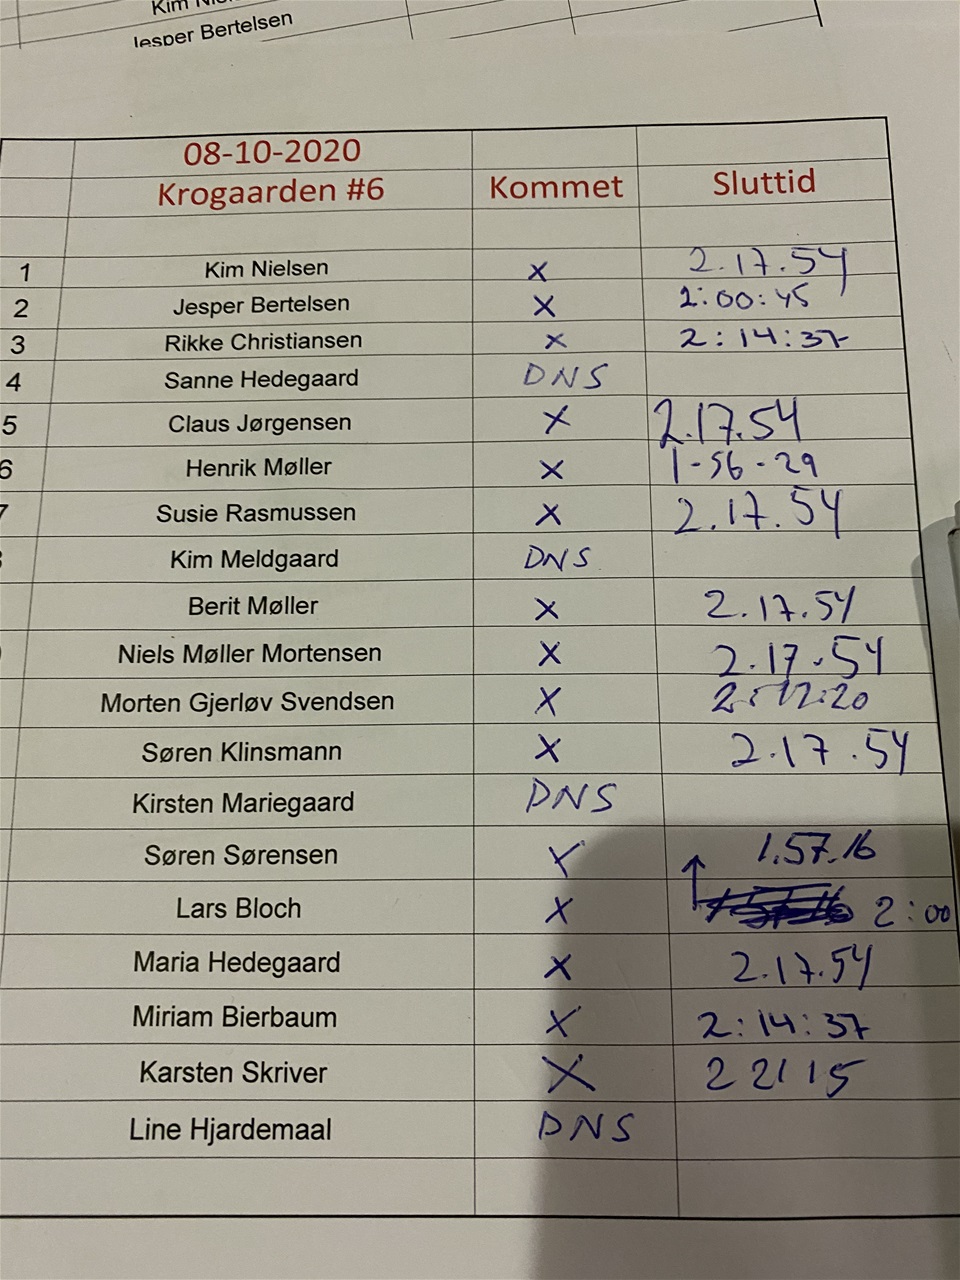 Kim
Jesper Bertelsen
08-10-2020
Krogaarden #6 Kommet Sluttid
1 Kim Nielsen X 2.17.54
2 Jesper Bertelsen X 2:00:45
3 Rikke Christiansen X 2:14:37
4 Sanne Hedegaard DNS
5 Claus Jørgensen X 2.17.54
6 Henrik Møller X 1-56-29
Susie Rasmussen X 2.17.54
Kim Meldgaard DNS
Berit Møller X 2.17.54
Niels Møller Mortensen X 2.17.54
Morten Gjerløv Svendsen X
Søren Klinsmann X 2.17.54
Kirsten Mariegaard DNS
Søren Sørensen X 1.57.16
Lars Bloch X 2:00
Maria Hedegaard X 2.17.54
Miriam Bierbaum X 2:14:37
Karsten Skriver X 2 21 15
Line Hjardemaal DNS